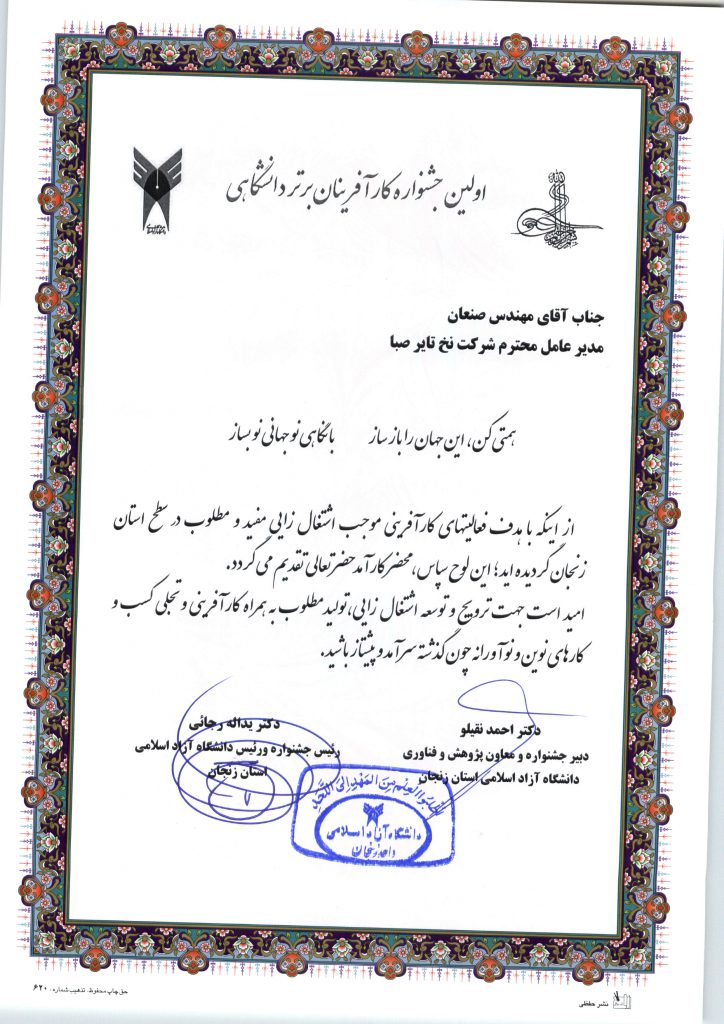 اولین جشنواره کارآفرینان برتر دانشگاهی
جناب آقای مهندس صنعان
مدیر عامل محترم شرکت نخ تایر صبا
همتی کن، این جهان را باز ساز با نگاهی نو جهانی نو بساز
از اینکه با هدف فعالیتهای کارآفرینی موجب اشتغال زایی مفید و مطلوب در سطح استان
زنجان گردیده اید؛ این لوح سپاس، محضر کارآمد حضرتعالی تقدیم می گردد.
امید است جهت ترویج و توسعه اشتغال زایی، تولید مطلوب به همراه کارآفرینی و تجلی کسب و
کارهای نوین و نوآورانه چون گذشته سرآمد و پیشتاز باشید.
دکتر احمد نقیلو
دبیر جشنواره و معاون پژوهش و فناوری
دانشگاه آزاد اسلامی استان زنجان
دکتر یداله رجائی
رئیس جشنواره ورئیس دانشگاه آزاد اسلامی
استان زنجان
اطلبوا العلم من المهد الی اللحد
دانشگاه آزاد اسلامی
واحد زنجان
نشر حفظی
حق چاپ محفوظ. تذهیب شماره: ۶۲۰